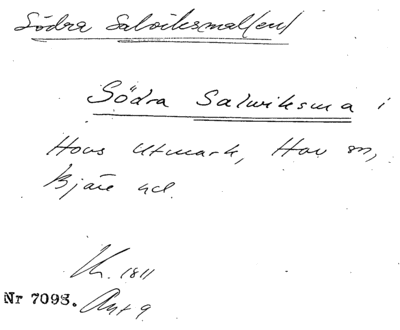 Södra Salviksmal(en)
Södra Salwiksma i
Hovs Utmark, Hov sn,
Bjäre hd.
1811
Nr 7098.